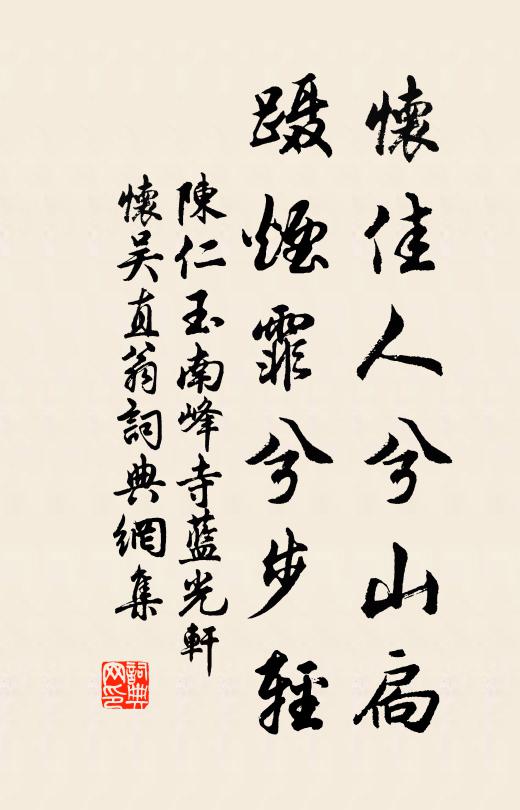 懷佳人兮山扃
躡煙霏兮步輕
陳仁玉南峰寺藍光軒
懷吴直翁詞典網集
詞典网印